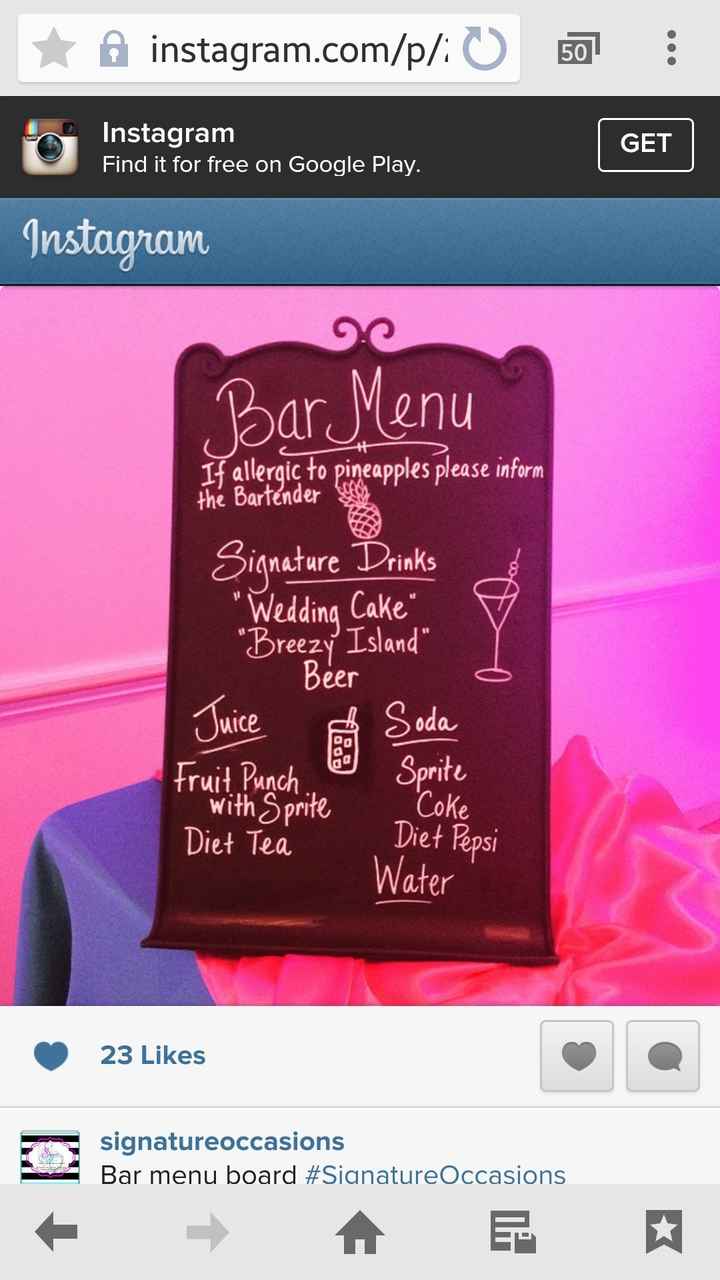 instagram.com/p/
50
Instagram
Find it for free on Google Play.
GET
Instagram
Bar Menu
If allergic to pineapples please inform
the Bartender
Signature Drinks
"Wedding Cake"
"Breezy Island"
Beer
Juice
Fruit Punch
with Sprite
Diet Tea
Soda
Sprite
Coke
Diet Pepsi
Water
23 Likes
signatureoccasions
Bar menu board #SignatureOccasions